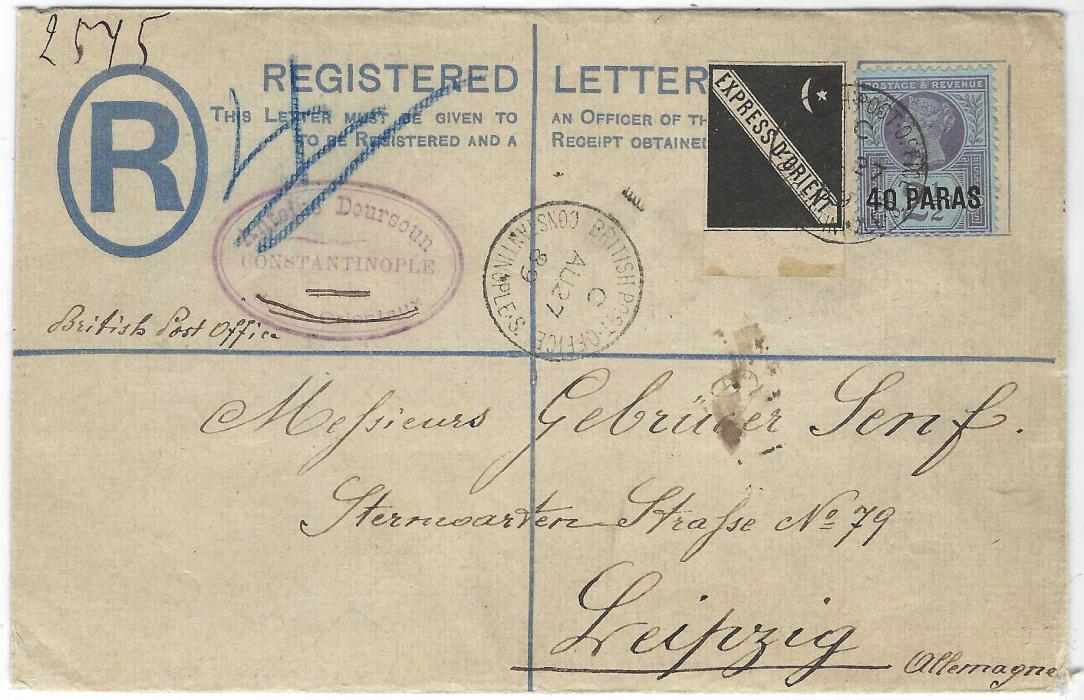 2545
R
REGISTERED LETTER
THIS LETTER MUST BE GIVEN TO AN OFFICER OF TH
TO BE REGISTERED AND A RECEIPT OBTAINED
EXPRESS D'ORIENT
POSTAGE & REVENUE
40 PARAS
2½
Doursoun
CONSTANTINOPLE
BRITISH POST-OFFICE
CONSTANTINOPLE.S.
C
AU 27
89
British Post Office
Messieurs Gebrüder Senf.
Sternwarten Strasse No 79
Leipzig
Allemagne